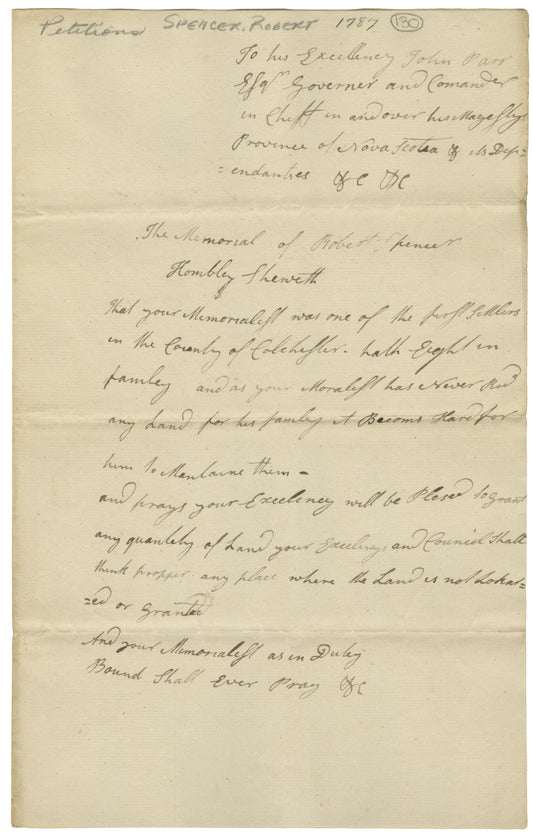 Petitions SPENCER, ROBERT 1787 130
To his Excellency John Parr
Esqr Governer and Comander
in Cheff in and over his Magestys
Province of Nova Scotia & its Dep=
=endanties &C &C
The Memorial of Robert Spencer
Hombley Sheweth
that your Memorialist was one of the first Settlers
in the County of Colchester. hath Eight in
famley and as your Moralist has Never Red
any Land for his famley it Becoms Hard for
him to Mantaine them -
and prays your Excelency will be Plesed to grant
any quantity of Land your Excelency and Council Shall
think propper any place where the Land is not Lokat=
=ed or granted
And your Memorialist as in Duty
Bound Shall Ever Pray &C